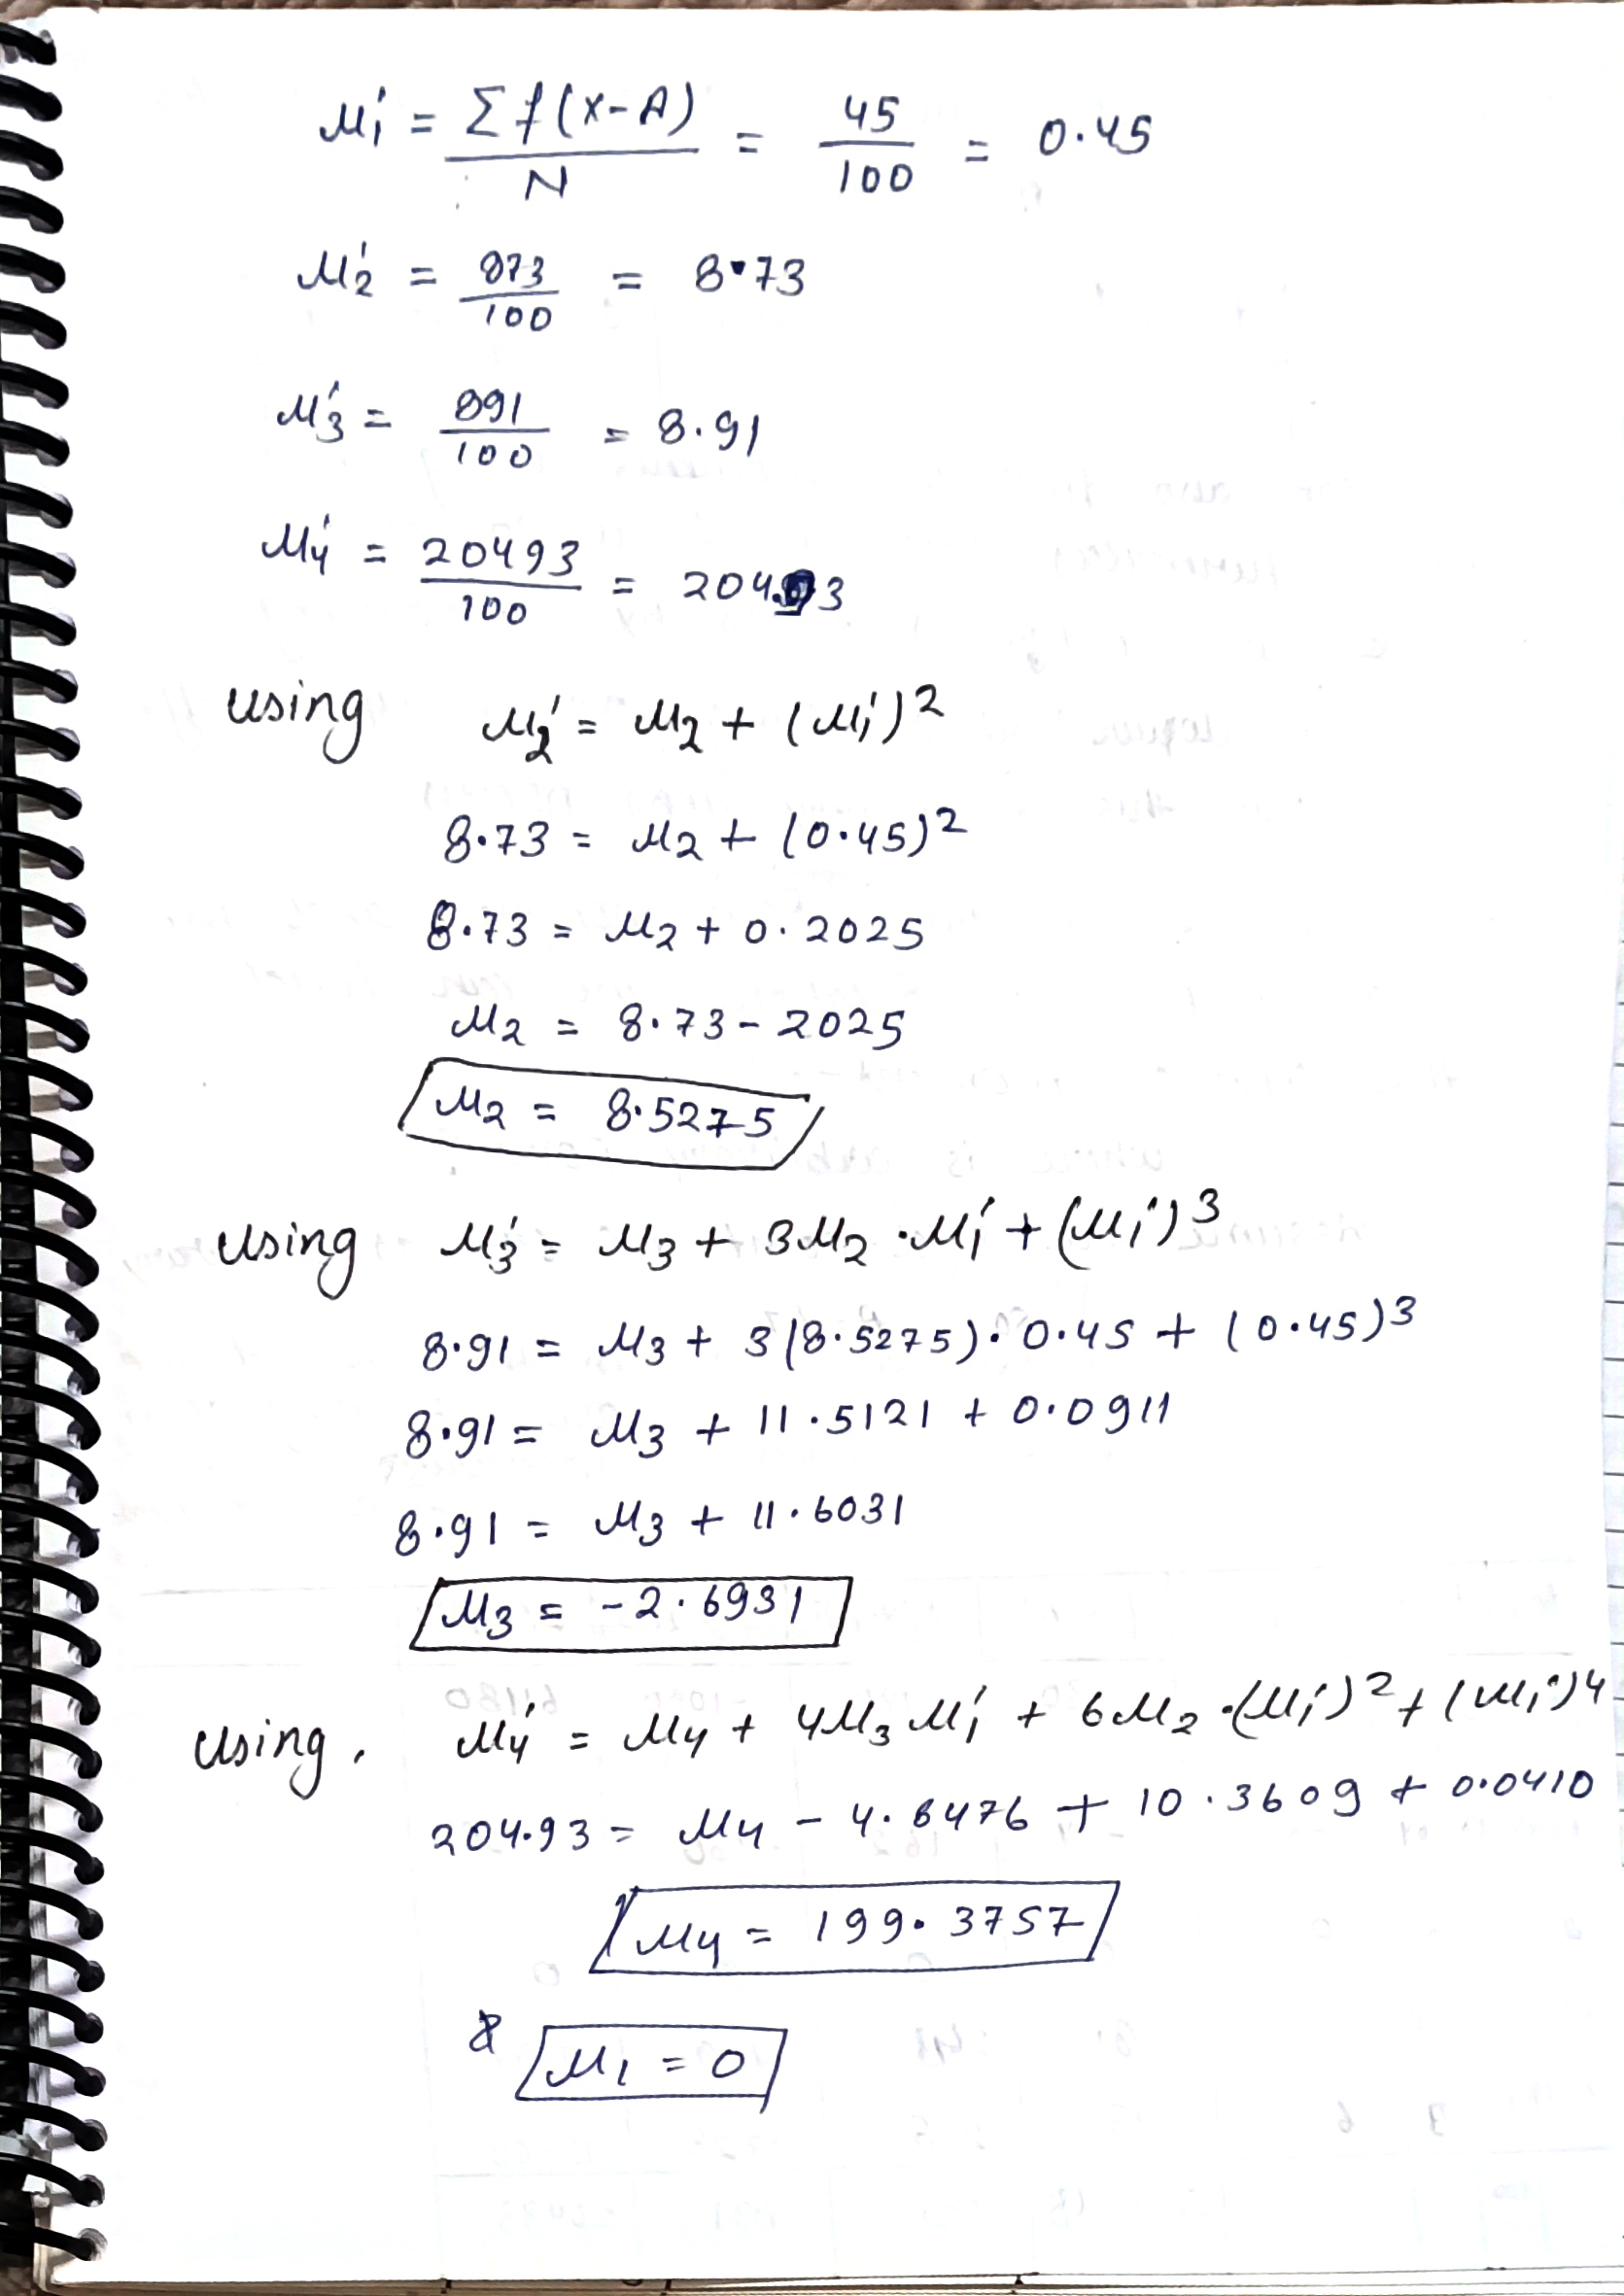 μ₁' = Σf(x-A)/N = 45/100 = 0.45
μ₂' = 873/100 = 8.73
μ₃' = 891/100 = 8.91
μ₄' = 20493/100 = 204.93
using μ₂' = μ₂ + (μ₁')²
8.73 = μ₂ + (0.45)²
8.73 = μ₂ + 0.2025
μ₂ = 8.73 - 2025
μ₂ = 8.5275
using μ₃' = μ₃ + 3μ₂ · μ₁' + (μ₁')³
8.91 = μ₃ + 3(8.5275) · 0.45 + (0.45)³
8.91 = μ₃ + 11.5121 + 0.0911
8.91 = μ₃ + 11.6031
μ₃ = -2.6931
using, μ₄' = μ₄ + 4μ₃ μ₁' + 6μ₂ · (μ₁')² + (μ₁')⁴
204.93 = μ₄ - 4.8476 + 10.3609 + 0.0410
μ₄ = 199.3757
& μ₁ = 0